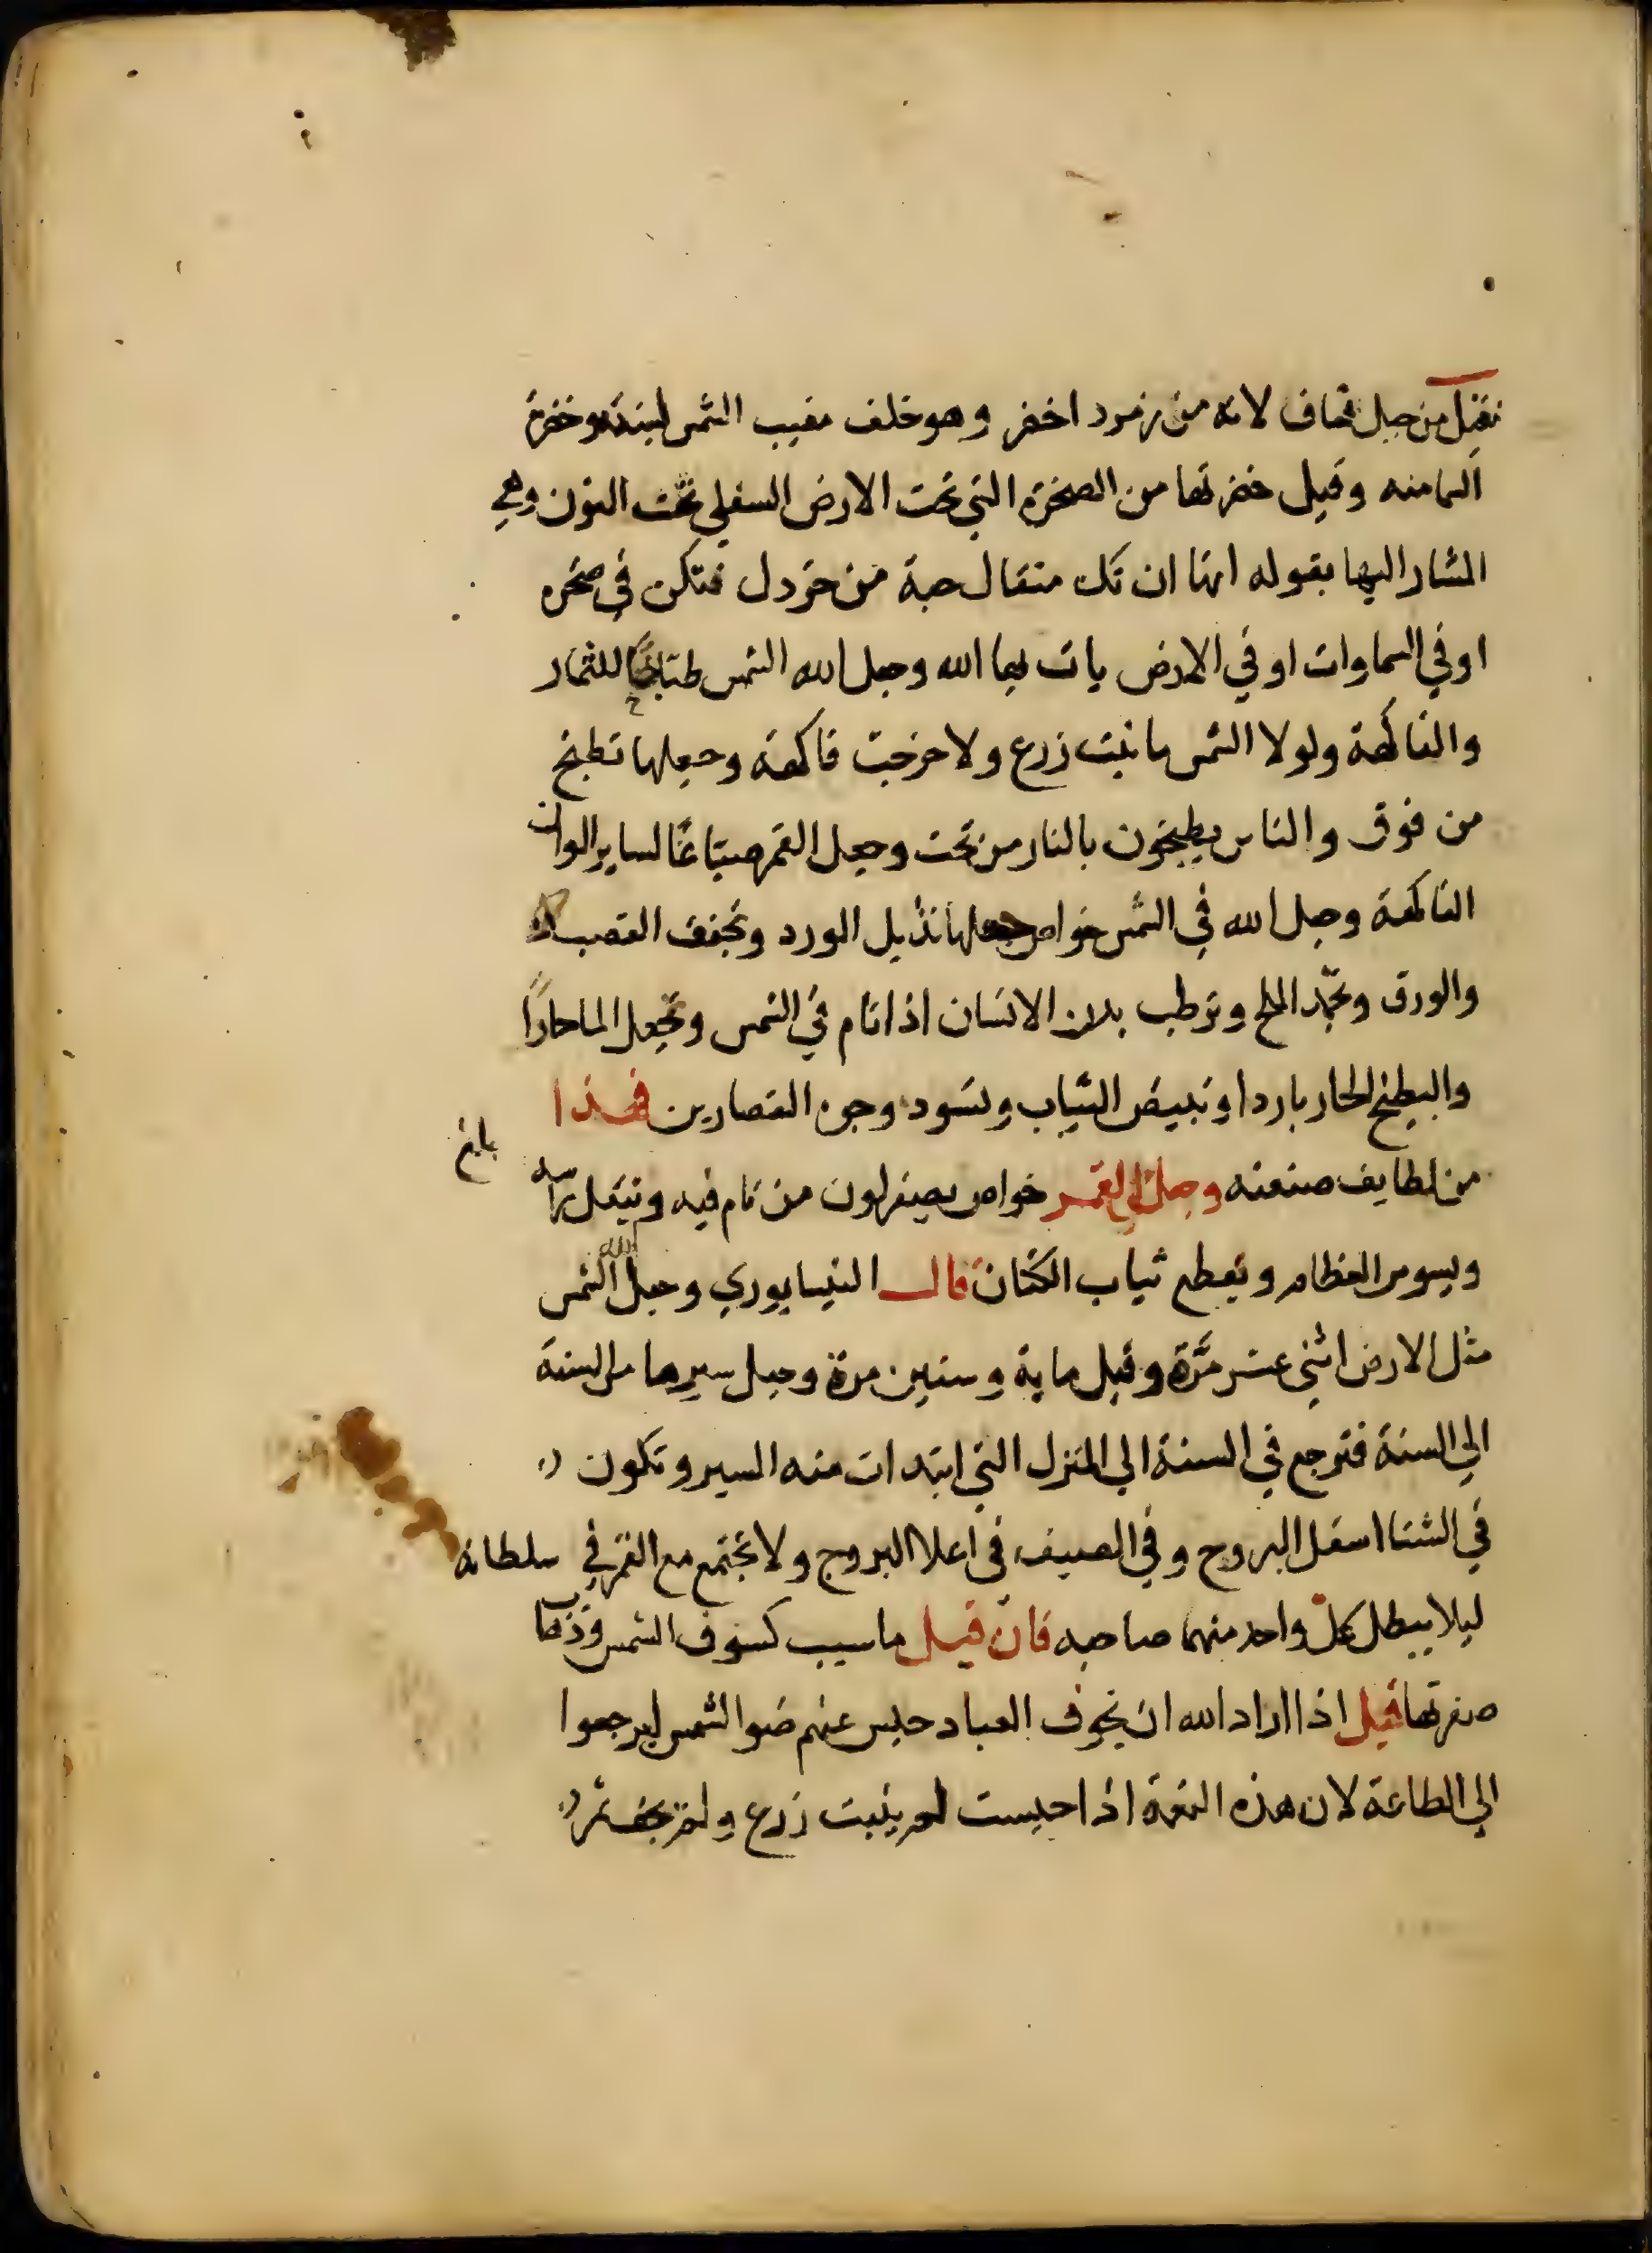 فقيل من جبل قاف لانه من زمرد اخضر وهو خلف مغيب الشمس وخضرة
السما منه وقيل خضرتها من الصخرة التي تحت الارض السفلي تحت النون وهي
المشار اليها بقوله انها ان تك مثقال حبة من خردل فتكن في صخره
او في السماوات او في الارض يات بها الله وجعل الله الشمس طباخا للثمار
والفاكهة ولولا الشمس ما نبت زرع ولا خرجت فاكهة وجعلها تطبخ
من فوق والناس يطبخون بالنار من تحت وجعل القمر صباغا لساير الوان
الفاكهة وجعل الله في الشمس خواص جعلها تذبل الورد وتجفف القصب
والورق وتجمد الملح وترطب بدن الانسان اذا نام في الشمس وتجعل الما حارا
والبطيخ الحار باردا وتبيض الثياب وتسود وجوه القصارين فهذا
من لطايف صنعته وجعل في القمر خواص يصفر لون من نام فيه ويثقل راسه
بلغ
ويسوس العظام ويقطع ثياب الكتان قال النيسابوري وجعل الله الشمس
مثل الارض اثني عشر مرة وقيل ماية وستين مرة وجعل سيرها من السنة
الي السنة فترجع في السنة الي المنزل التي ابتدات منه السير وتكون
في الشتا اسفل البروج وفي الصيف في اعلا البروج ولا تجتمع مع القمر في سلطانه
ليلا يبطل كل واحد منهما صاحبه فان قيل ما سبب كسوف الشمس
صفرتها قيل اذا اراد الله ان يخوف العباد حبس عنهم ضو الشمس ليرجعوا
الي الطاعة لان هذه النعمة اذا حبست لم ينبت زرع ولم يجف ثمر